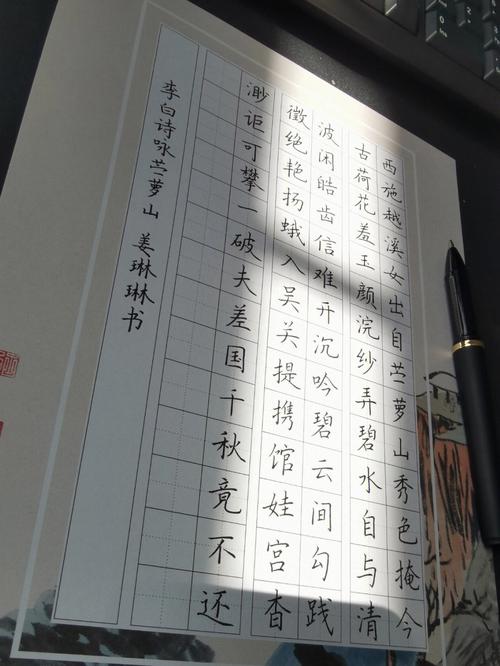 西施越溪女出自苎萝山秀色掩今
古荷花羞玉颜浣纱弄碧水自与清
波闲皓齿信难开沉吟碧云间勾践
徵绝艳扬蛾入吴关提携馆娃宫杳
渺讵可攀一破夫差国千秋竟不还
李白诗咏苎萝山 姜琳琳书